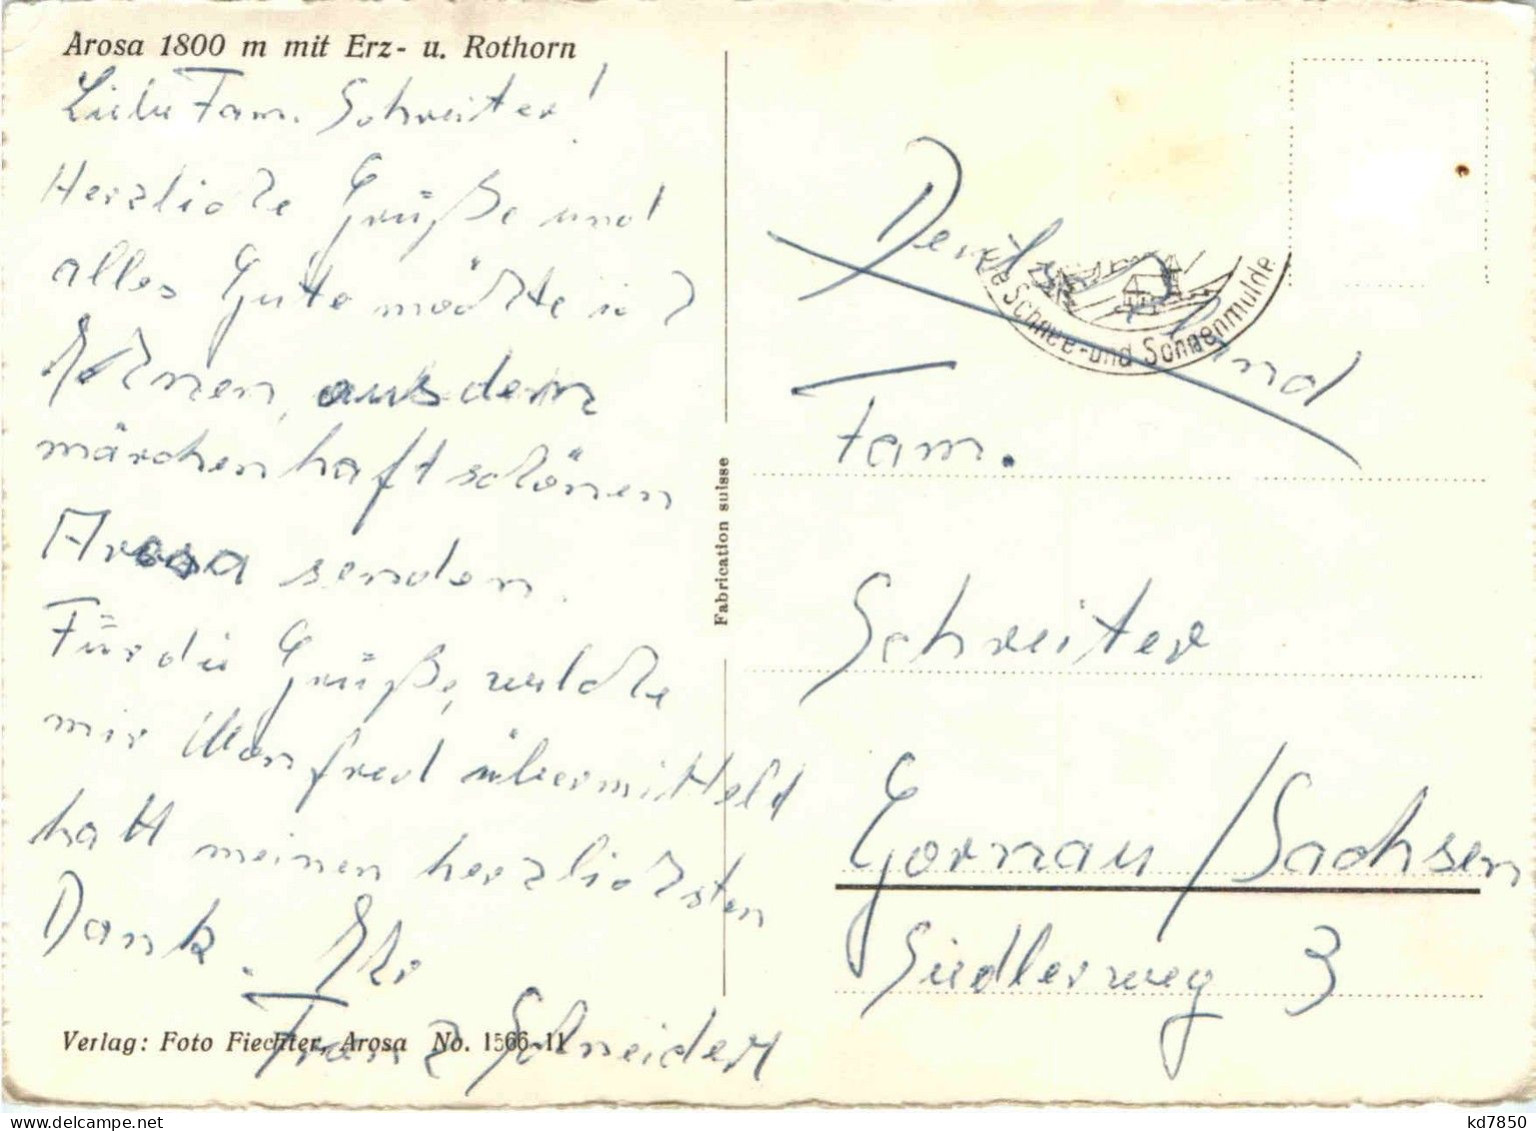 Arosa 1800 m mit Erz- u. Rothorn
Liebe Fam. Schreiter!
Herzliche Grüße und
alles Gute möchte ich
Ihnen, aus dem
märchenhaft schönen
Arosa senden.
Für die Grüße, welche
mir Manfred übermittelt
hatt meinen herzlichsten
Dank. Ihr
Franz Schneidert
Verlag: Foto Fiechter, Arosa No. 1566-11
Fabrication suisse
Schnee- und Sonnenmulde
Deutschland
Fam.
Schreiter
Gornau / Sachsen
Siedlerweg 3
kd7850